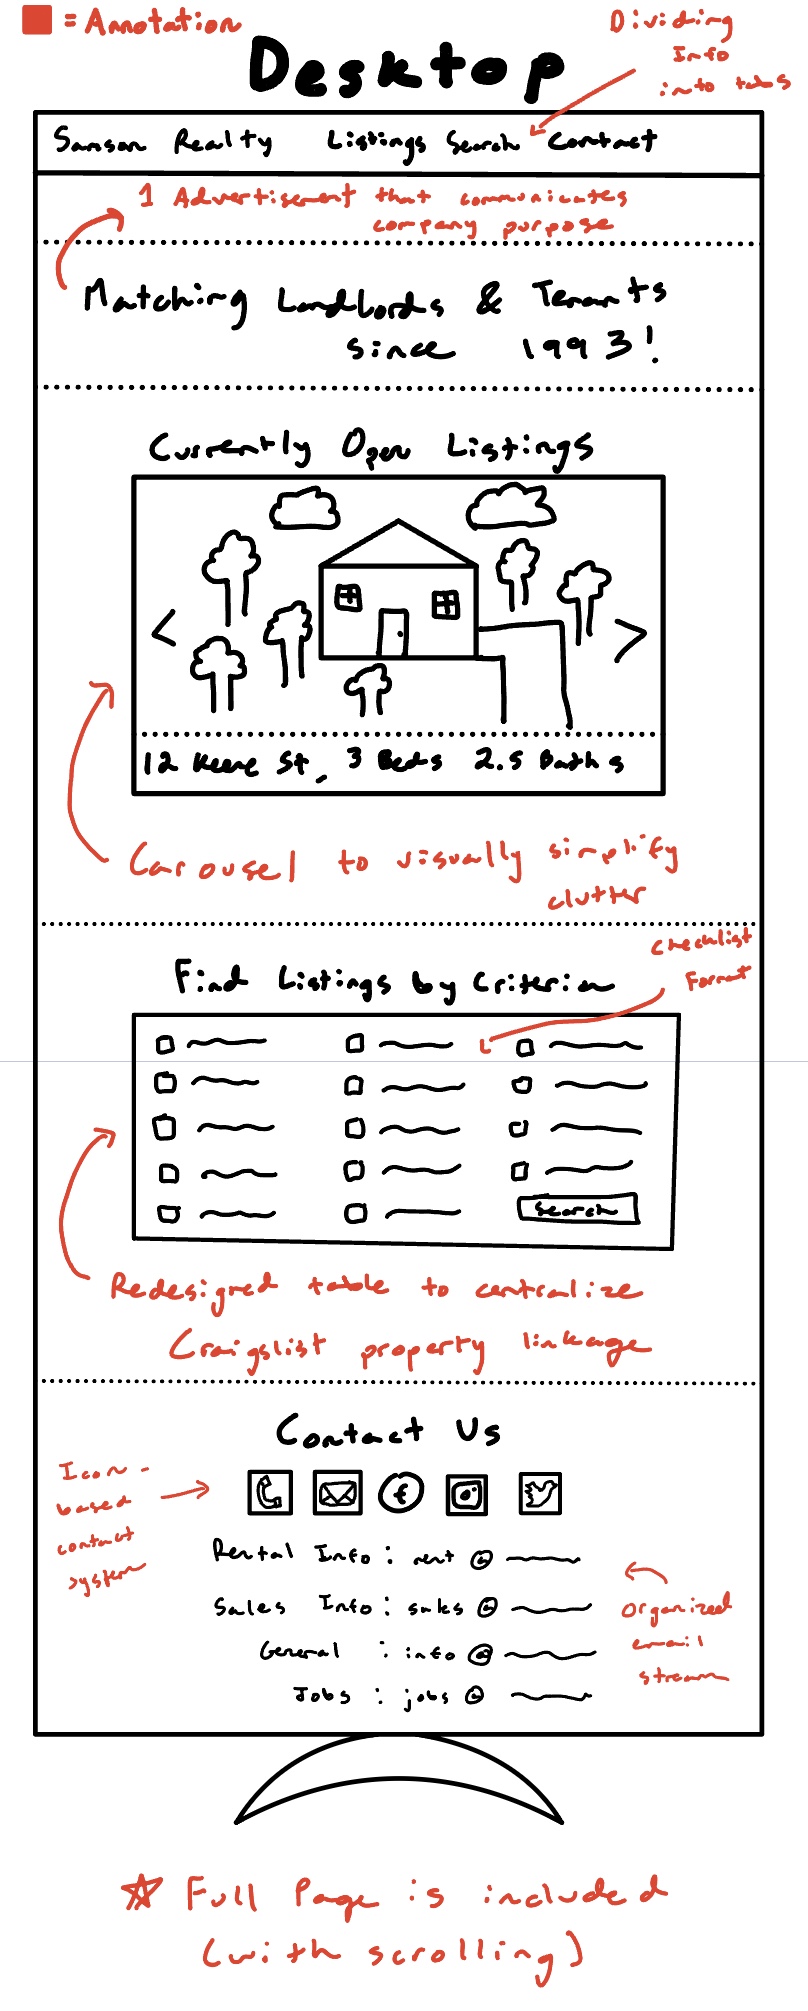 = Annotation
Dividing
Info
into tabs
Desktop
Samson Realty Listings Search Contact
1 Advertisement that communicates
company purpose
Matching Landlords & Tenants
since 1993!
Currently Open Listings
< >
12 Keene St, 3 Beds 2.5 Baths
Carousel to visually simplify
clutter
Checklist
Format
Find Listings by Criterion
Search
Redesigned table to centralize
Craigslist property linkage
Contact Us
Icon-
based
contact
system
f
Rental Info: rent @
Sales Info: sales @
General : info @
Jobs : jobs @
Organized
email
stream
Full Page is included
(with scrolling)